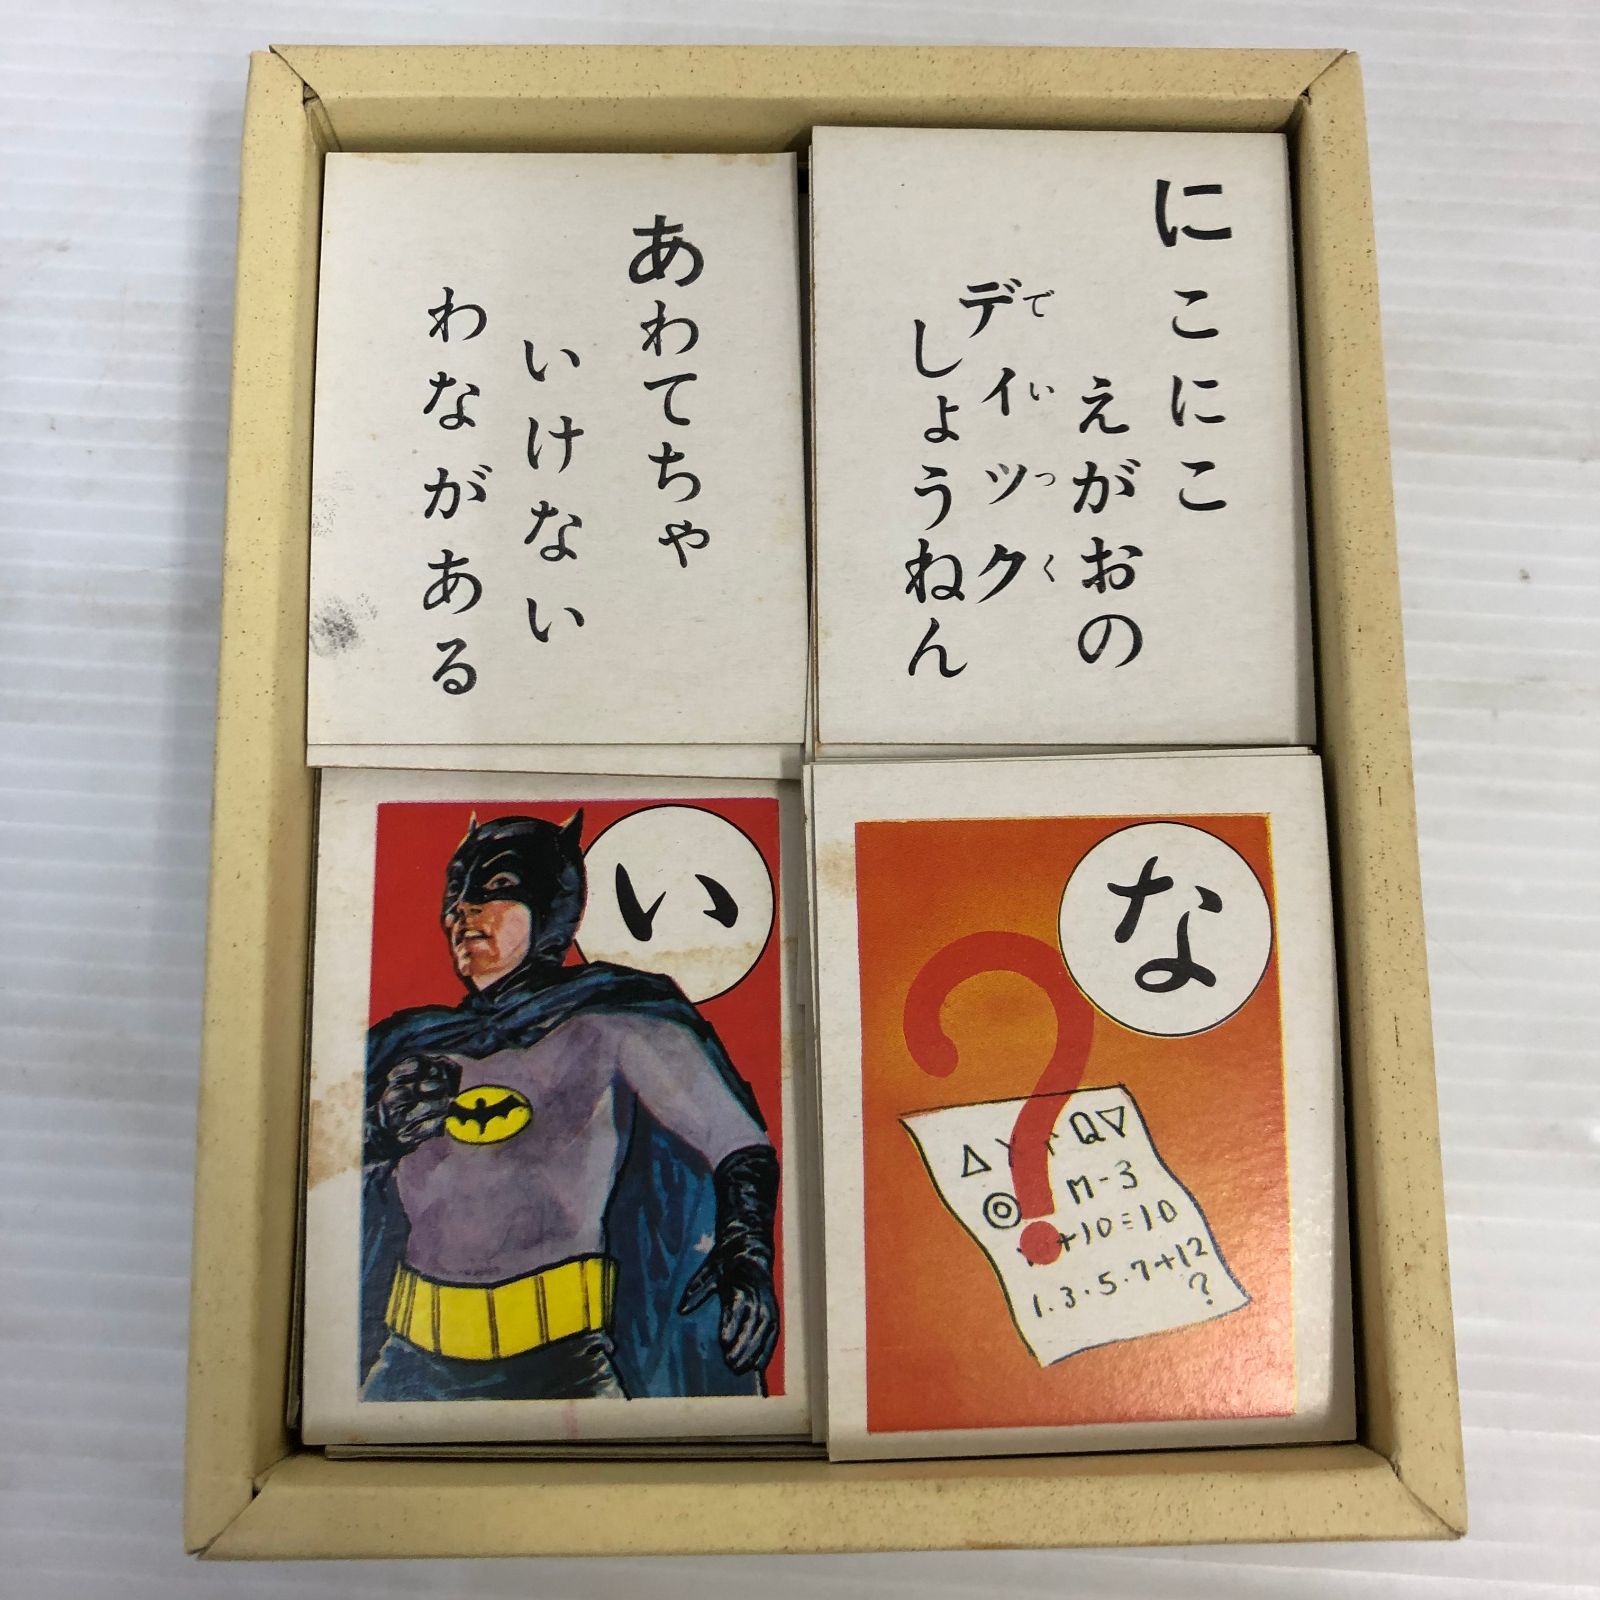 あわてちゃ
いけない
わながある
にこにこ
えがおの
ディック
でいつく
しょうねん
い
な
M-3
+10=10
1.3.5.7+12
?